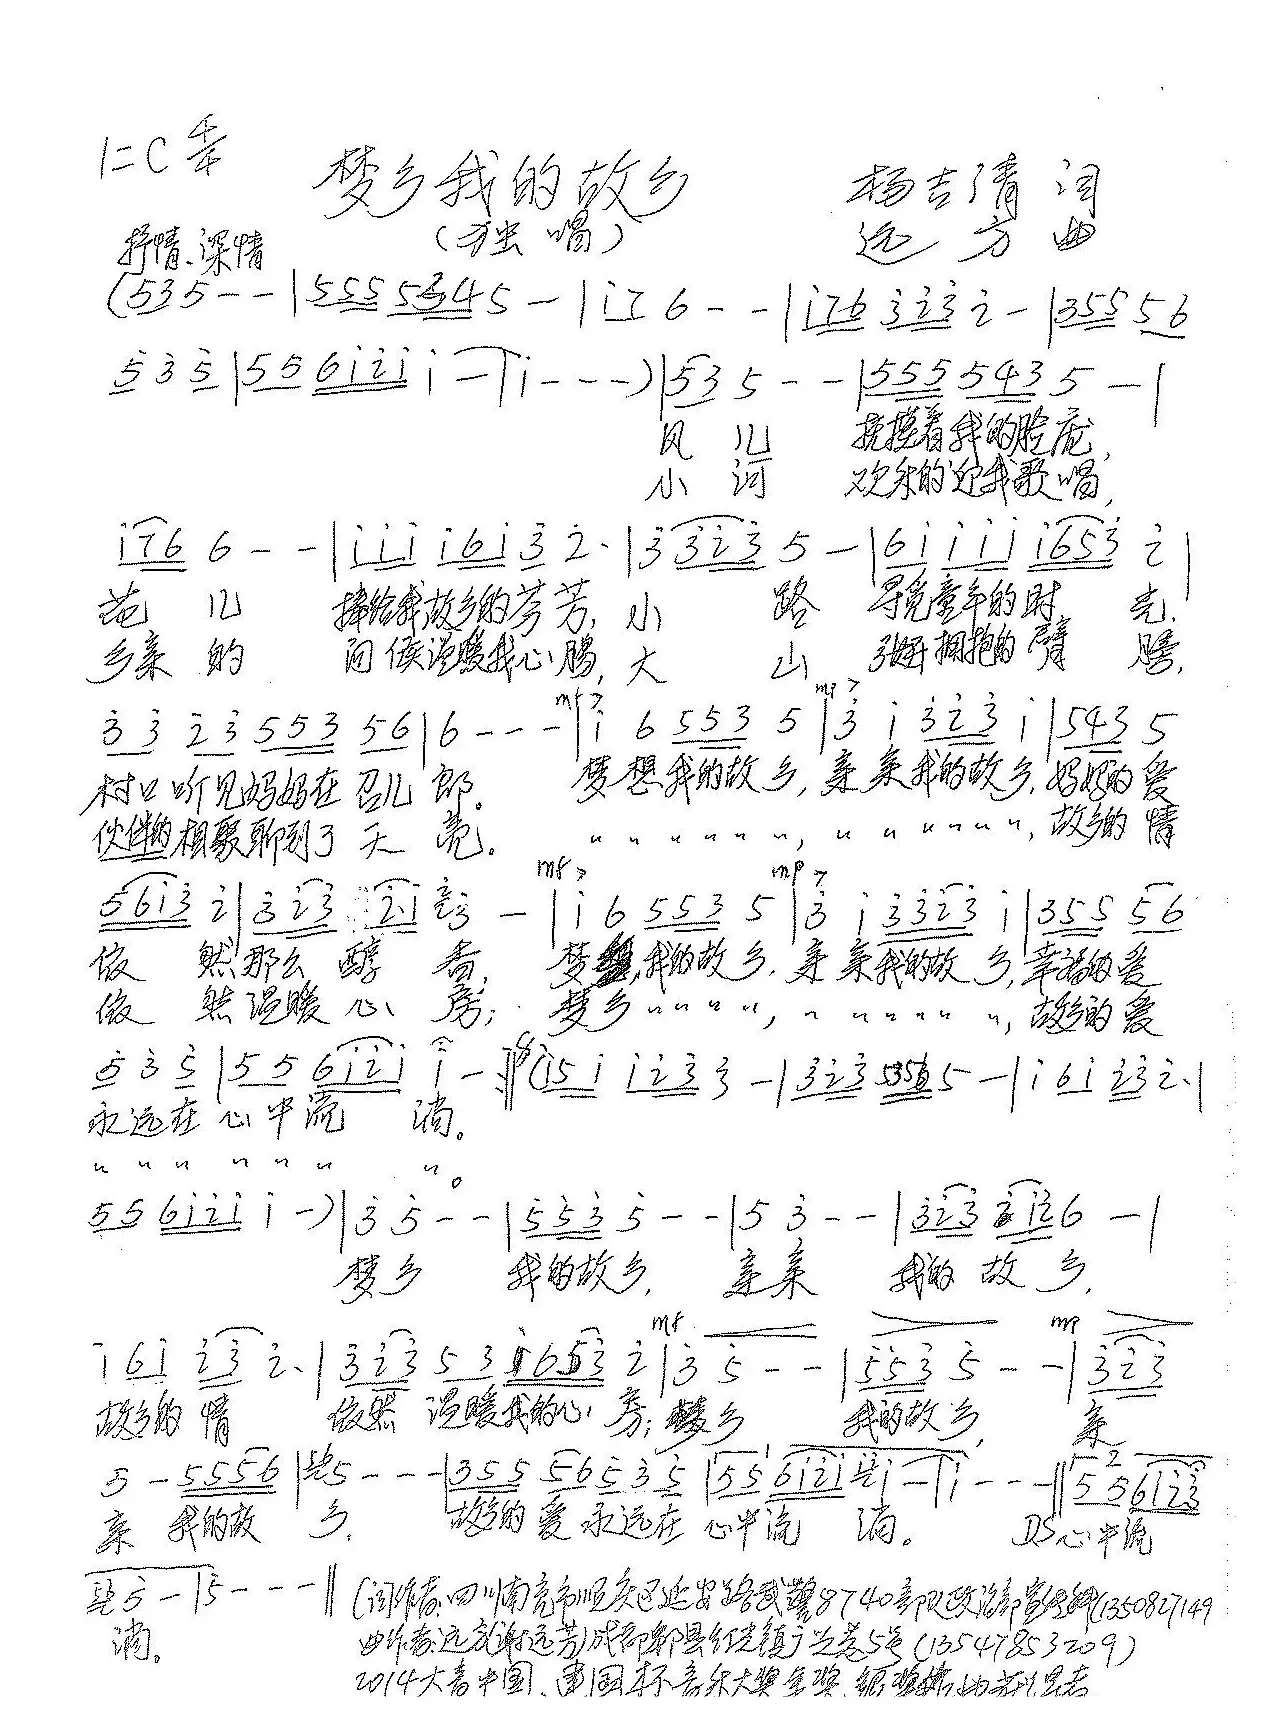 1=C 4/4
梦乡我的故乡
杨吉清 词
(独唱)
远方 曲
抒情、深情
(535--|555 5345-|i76--|i76 323 2-|355 56
535|55 6i2i i-|i---)|535--|555 543 5-|
风儿 抚摸着我的脸庞,
小河 欢乐的迎我歌唱,
i76 6--|iii i6i 3 2·|3 323 5-|6i ii i653 2|
花儿 捧给我故乡的芬芳,小路 寻觅童年的时光.
乡亲的 问候温暖我心肠,大山 张开拥抱的臂膀,
mf> mp>
33 23 553 56|6---|i 6 553 5|3 i 323 i|543 5
村口听见妈妈在召儿郎。 梦想我的故乡,亲亲我的故乡,妈妈的爱
伙伴的相聚聊到了天亮。 〃〃〃〃〃〃,〃〃〃〃〃〃,故乡的情
mf> mp>
56i3 2|3 23 2·i 23-|i 6 553 5|3 i 3323 i|355 56
依然那么醇香, 梦想,我的故乡.亲亲我的故乡,幸福的爱
依然温暖心房; 梦乡〃〃〃〃,〃〃〃〃〃〃,故乡的爱
535|55 6i2i i-‖(i5i i23 3-|323 5356 5-|i6i 232·|
永远在心中流淌。
〃〃〃〃〃〃〃。
55 6i2i i-)|35--|553 5--|53--|323 3i2 6-|
梦乡 我的故乡, 亲亲 我的故乡,
mf mp
i6i 23 2·|323 53 i653 2|35--|553 5--|323
故乡的情 依然温暖我的心房;梦乡 我的故乡, 亲
5-5556|5---|355 56 535|55 6i2i i-|i---‖55 6i23
亲我的故乡. 故乡的爱永远在心中流淌。 D.S心中流
5-|5---‖
淌。
(词作者:四川南充市顺庆区延安路武警8740部队政治部 (1350827149
曲作者:远方(谢远芳)成都郫县红光镇广兰巷5号(13547853209)
2014大音中国、建国杯音乐大奖金奖